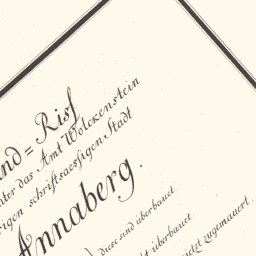 und= Riss
unter das Amt Wolckenstein
rigen schriftsaessigen Stadt
Annaberg.
diese sind überbauet
überbauet
zugemauert.